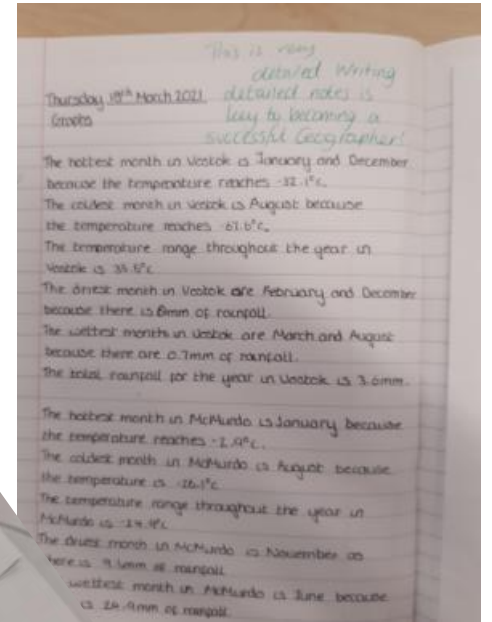 This is very
detailed writing
detailed notes is
key to becoming a
successful Geographer!
Thursday 18th March 2021
Graphs
The hottest month in Vostok is January and December
because the temperature reaches -32.1°c.
The coldest month in Vostok is August because
the temperature reaches -67.6°c.
The temperature range throughout the year in
Vostok is 35.5°c
The driest month in Vostok are February and December
because there is 0mm of rainfall.
The wettest month in Vostok are March and August
because there are 0.7mm of rainfall.
The total rainfall for the year in Vostok is 3.6mm.
The hottest month in McMurdo is January because
the temperature reaches -2.9°c.
The coldest month in McMurdo is August because
the temperature is
The temperature range throughout the year in
McMurdo is
The driest month in McMurdo is November as
there is of rainfall
wettest month in McMurdo is June because
is 24.9mm of rainfall.